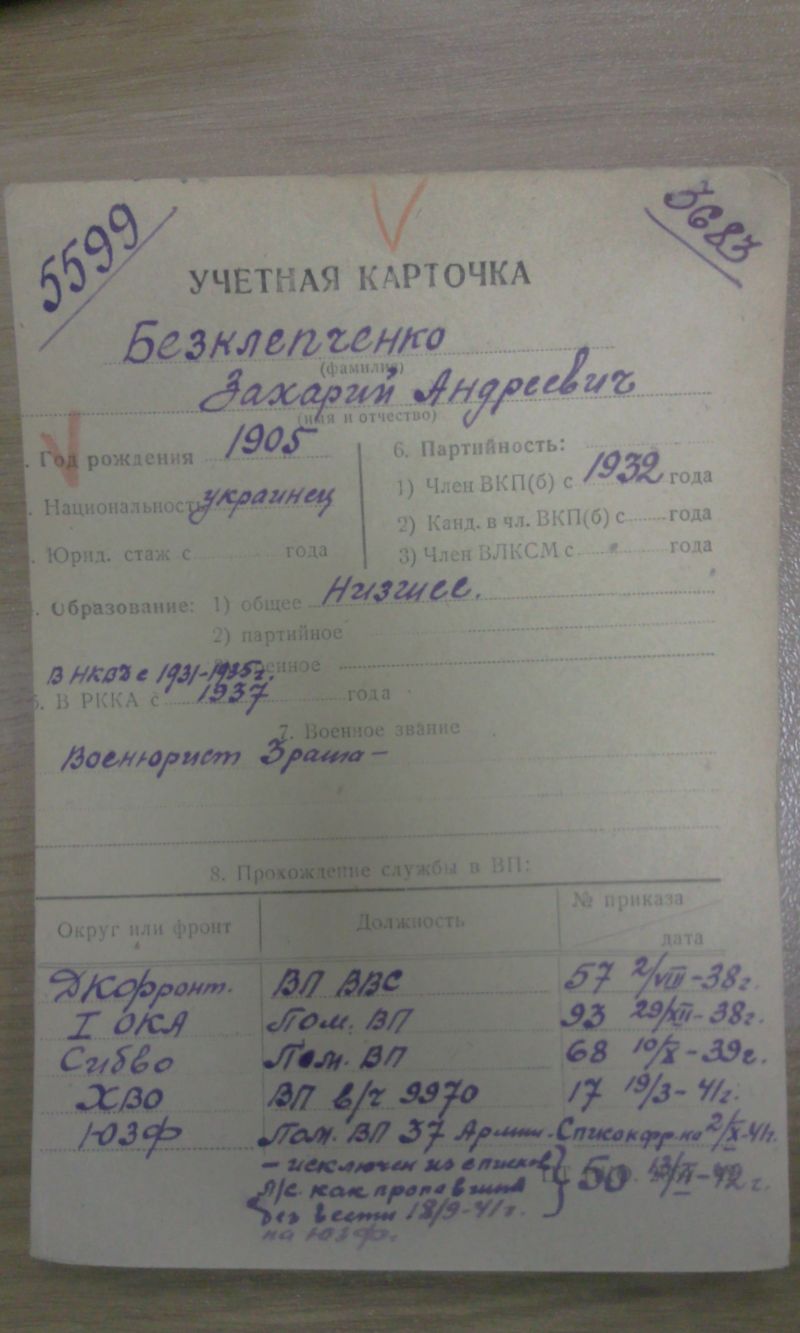 5599
3683
УЧЕТНАЯ КАРТОЧКА
Безклепченко
(фамилия)
Захарий Андреевич
(имя и отчество)
Год рождения 1905
6. Партийность:
1) Член ВКП(б) с 1932 года
. Национальность украинец
2) Канд. в чл. ВКП(б) с года
. Юрид. стаж с года
3) Член ВЛКСМ с года
. Образование: 1) общее Низшее.
2) партийное
В НКВД с 1931-1935г.
5. В РККА с 1937 года
7. Военное звание
Военюрист 3 ранга –
8. Прохождение службы в ВП:
Округ или фронт Должность № приказа
дата
ДКфронт. ВП ВВС 57 2/VIII-38г.
I ОКА Пом. ВП 93 29/XII-38г.
Сибво Пом. ВП 68 10/X-39г.
ХВО ВП в/ч 9970 17 19/3-41г.
ЮЗФ Пом. ВП 37 Армии. Список фр. на 2/X-41г.
– исключен из списков
л/с. как пропавший } 50
без вести 18/9-41г.
на ЮЗФ.